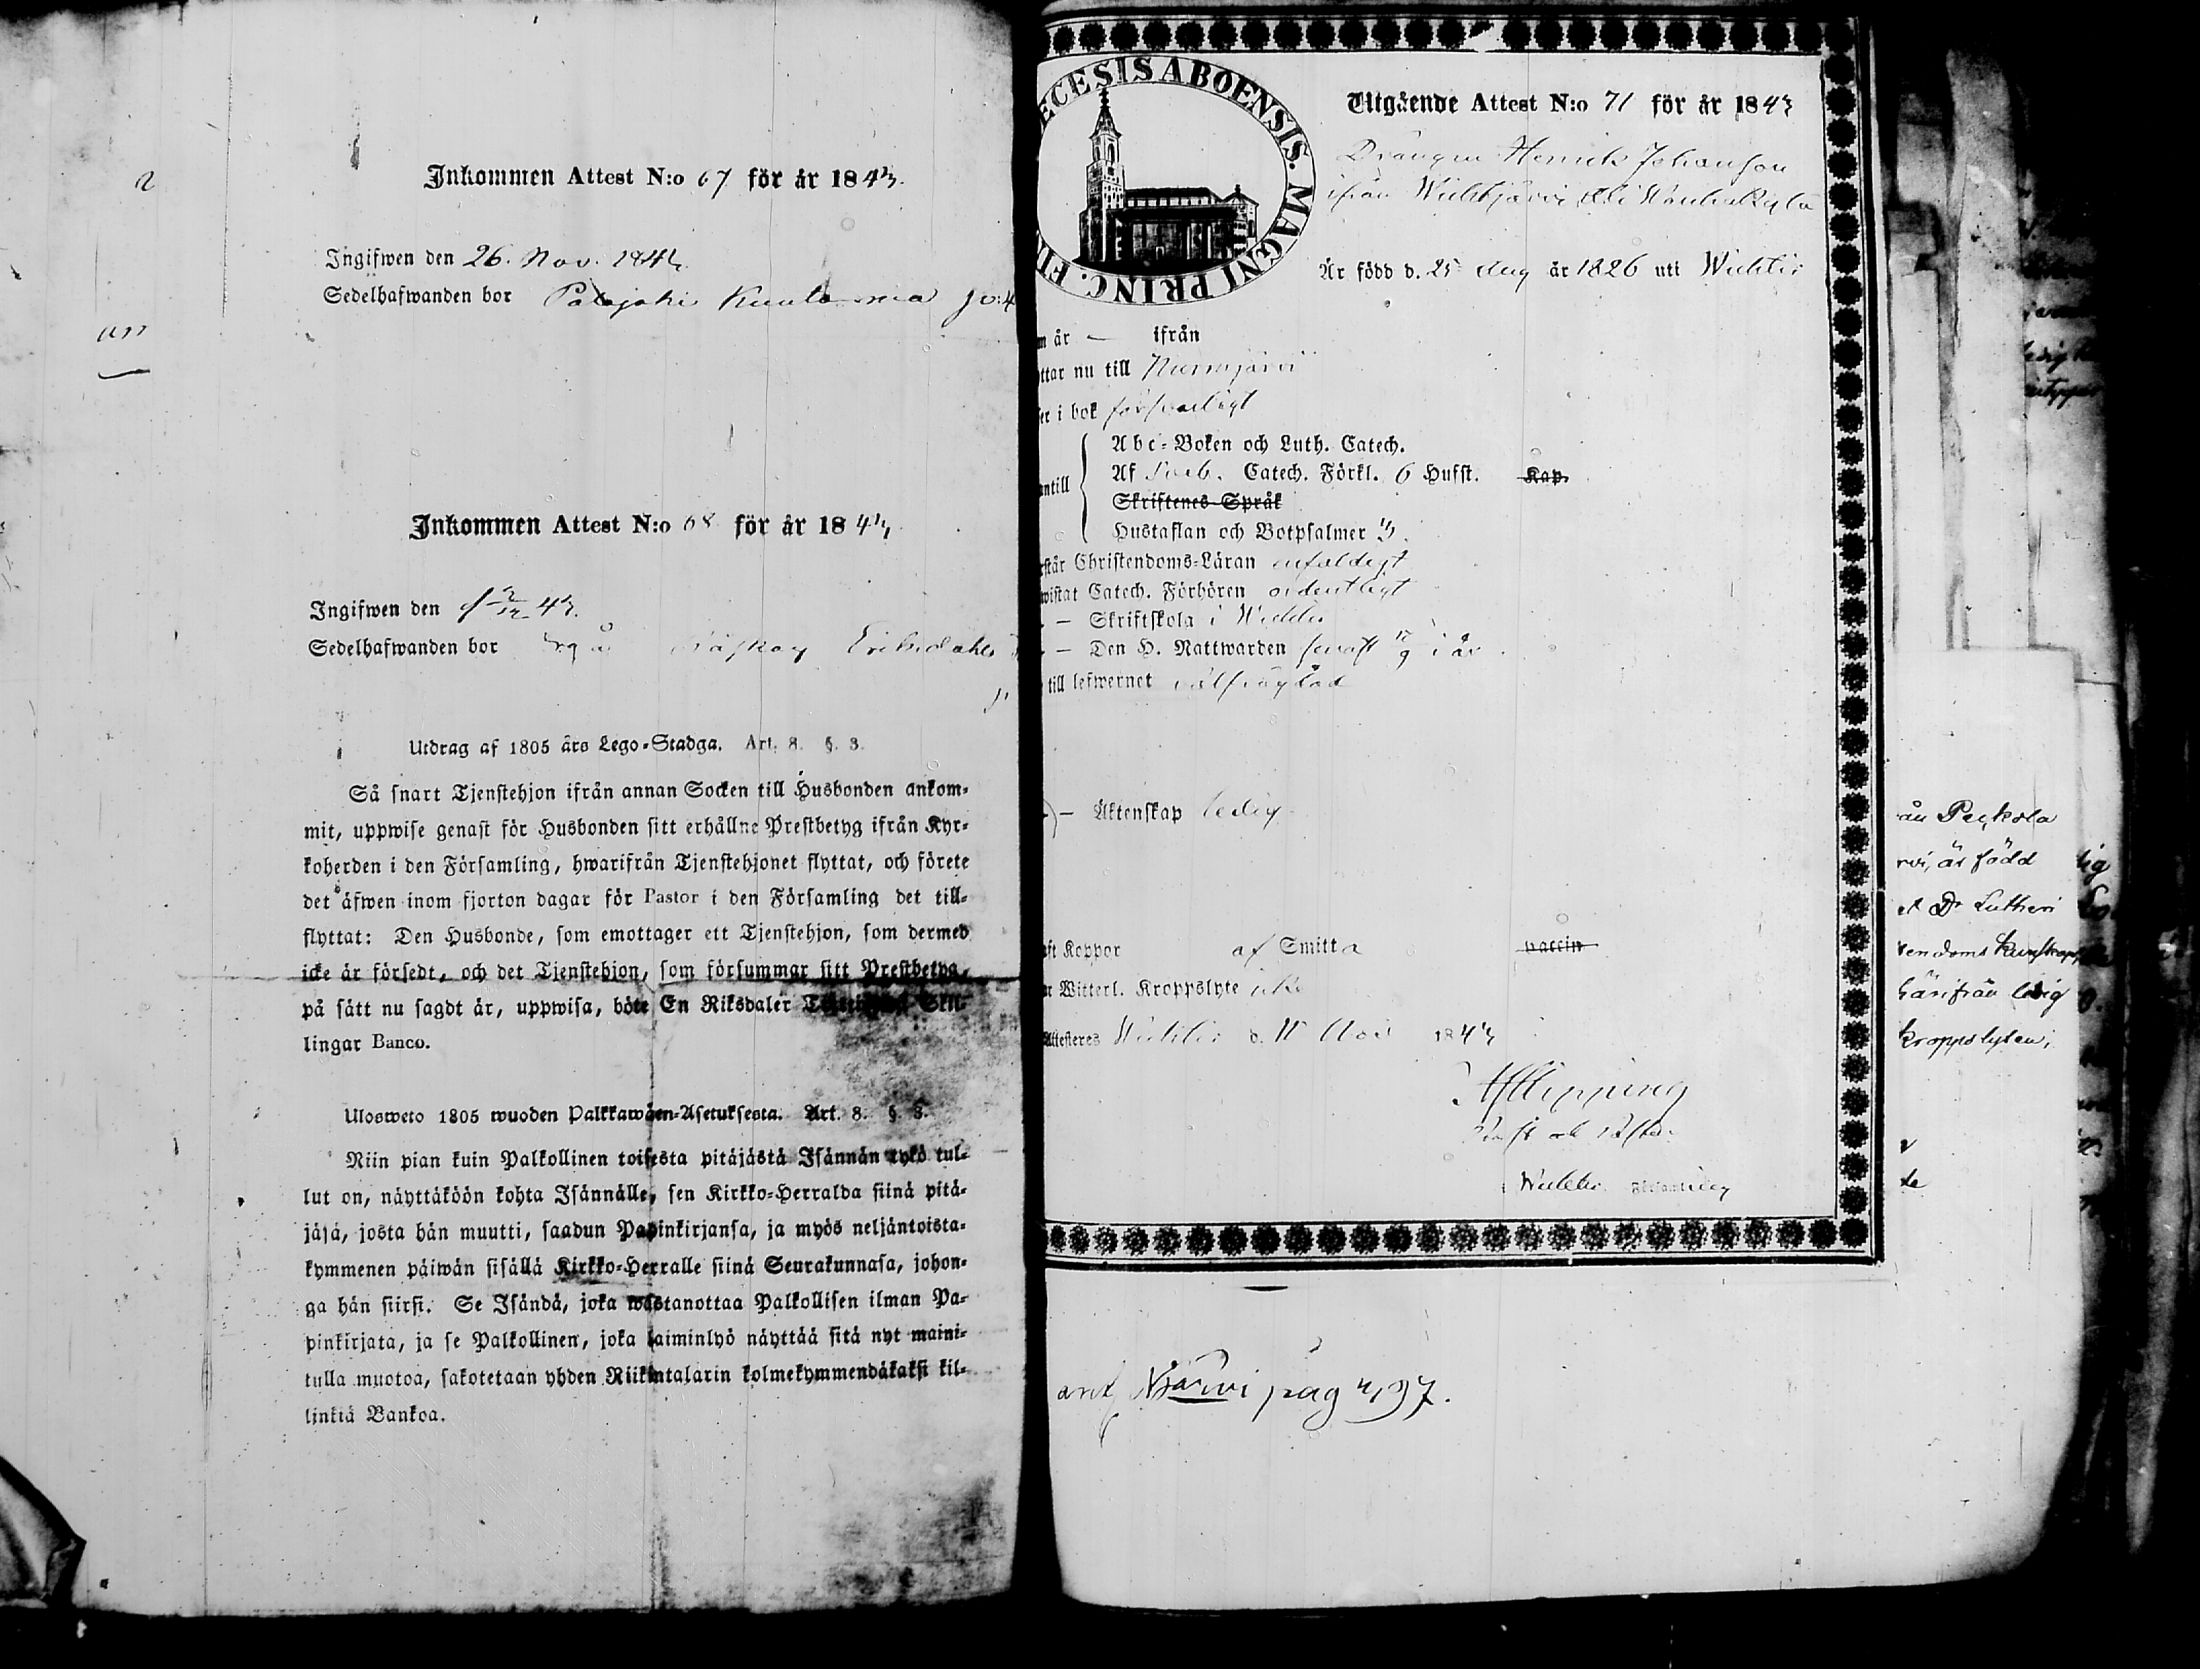 Inkommen Attest N:o 67 för år 1843.
Ingifwen den 26. Nov. 1843.
Sedelhafwanden bor Palojoki
Inkommen Attest N:o 68 för år 1843
Ingifwen den 43.
Sedelhafwanden bor
Utdrag af 1805 års Lego-Stadga. Art. 8. §. 3.
Så snart Tjenstehjon ifrån annan Socken till Husbonden ankom-
mit, uppwise genast för Husbonden sitt erhållne Prestbetyg ifrån Kyr-
koherden i den Församling, hwarifrån Tjenstehjonet flyttat, och förete
det äfwen inom fjorton dagar för Pastor i den Församling det till-
flyttat: Den Husbonde, som emottager ett Tjenstehjon, som dermed
icke är försedt, och det Tjenstehjon, som försummar sitt Prestbetyg,
på sätt nu sagdt är, uppwisa, böte En Riksdaler Skil-
lingar Banco.
Ulosweto 1805 wuoden Palkkawäen-Asetuksesta. Art. 8. §. 3.
Niin pian kuin Palkollinen toisesta pitäjästä Isännän tykö tul-
lut on, näyttäköön kohta Isännälle, sen Kirkko-Herralda siinä pitä-
jäsä, josta hän muutti, saadun Papinkirjansa, ja myös neljäntoista-
kymmenen päiwän sisällä Kirkko-Herralle siinä Seurakunnasa, johon-
ga hän siirsi. Se Isändä, joka wastanottaa Palkollisen ilman Pa-
pinkirjata, ja se Palkollinen, joka laiminlyö näyttää sitä nyt maini-
tulla muotoa, sakotetaan yhden Riikintalarin kolmekymmendäkaksi kil-
linkiä Bankoa.
ECESIS ABOENSIS. MAGNI PRINC. FI
Utgående Attest N:o 71 för år 1843
Drängen Henrik Johansson
ifrån
Är född d. 25 Aug år 1826 uti Wichtis
m år — ifrån
ttar nu till Nurmijärvi
er i bok försvarligt
antill
Abc-Boken och Luth. Catech.
Af Catech. Förkl. 6 Hufst. Kap.
Skriftenes Språk
Hustaflan och Botpsalmer 3.
rstår Christendoms-Läran enfaldigt
wistat Catech. Förhören ordentligt
— Skriftskola i Wichtis
— Den H. Nattwarden senast i år
till lefwernet välfrägdad
— Äktenskap ledig
ft Koppor af Smitta vaccin
r Witterl. Kroppslyte icke
Attesteres Wichtis d. Nov 1843
Wichtis Församling
pag 497.
ån Peckola
rvi, är född
Dr Lutheri
tendoms kunskap
härifrån ledig
kroppslyten;